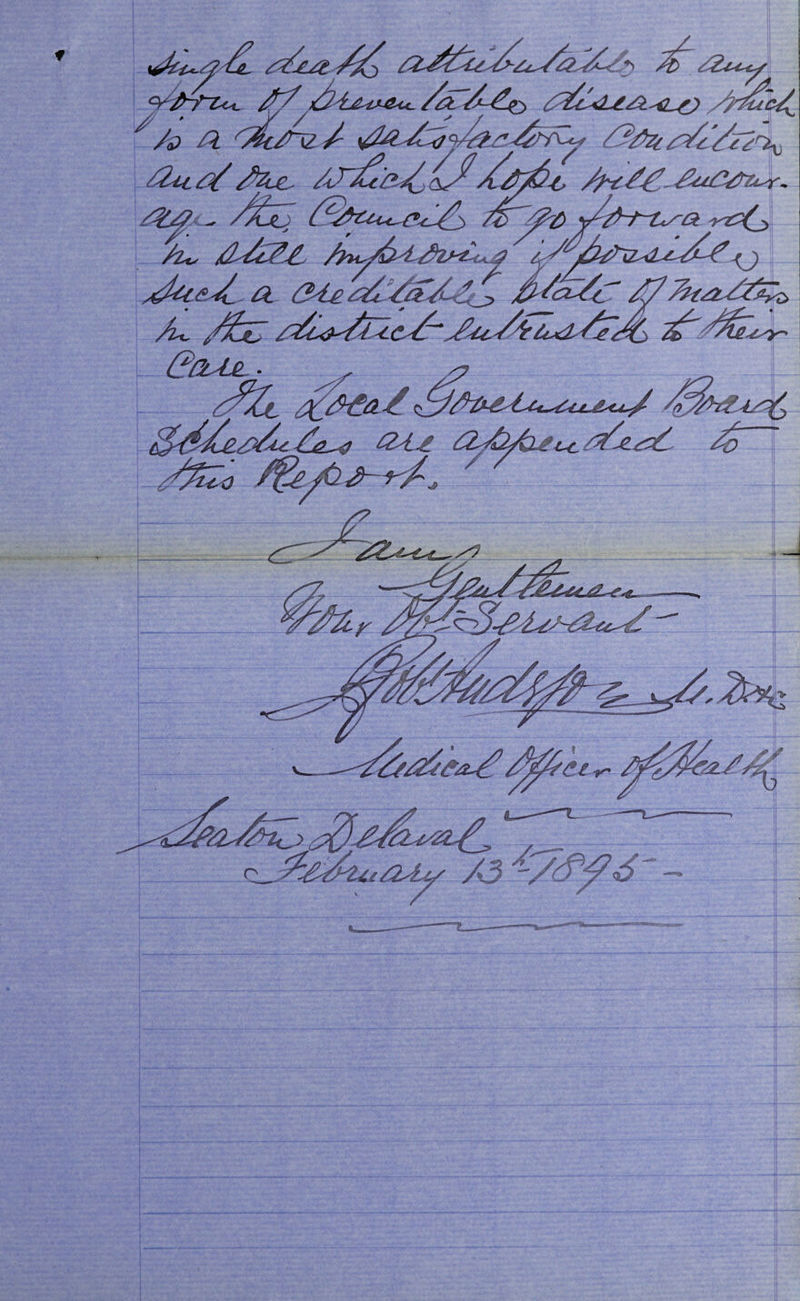 single death attributable to any
form of preventable disease which
is a most satisfactory condition
and one which I hope will encour-
age the Council to go forward
in still improving if possible
such a creditable state of matters
in the district entrusted to their
care.
The Local Government Board
Schedules are appended to
this Report.
I am
Gentlemen
Your Obt Servant
Robt Anderson M.D. &c
Medical Officer of Health
Seaton Delaval
February 13th 1895